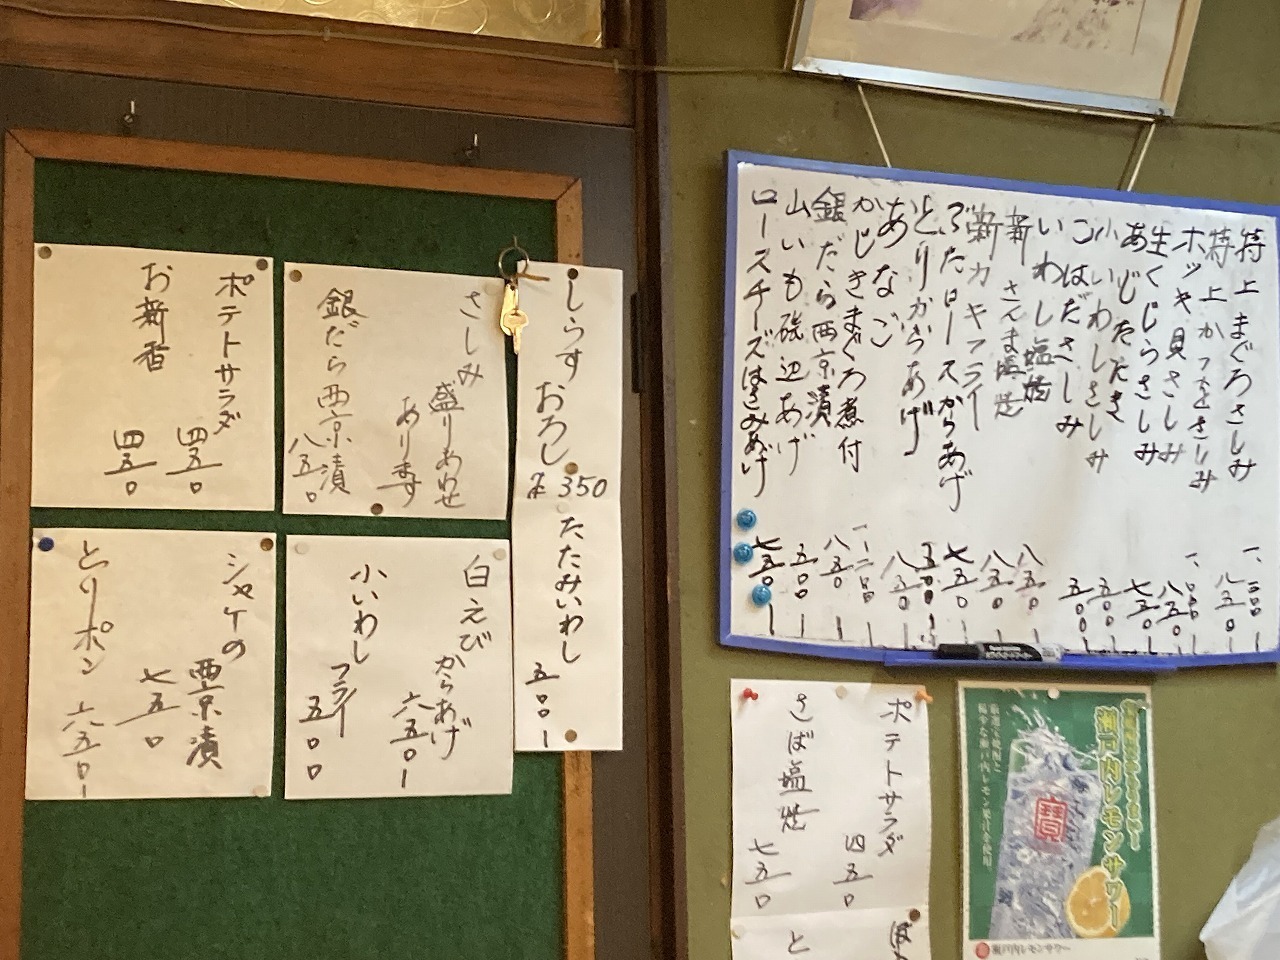 ポテトサラダ
四五〇
お新香
四五〇
さしみ
盛りあわせ
あります
銀だら西京漬
八五〇
しらすおろし
350
たたみいわし
五〇〇
シャケの
西京漬
七五〇
とりポン
六五〇
白えび
からあげ
六五〇
小いわし
フライ
五〇〇
特上まぐろさしみ
特上かつをさしみ
八五〇
ホッキ貝さしみ
生くじらさしみ
八五〇
あじたたき
七五〇
小いわしさしみ
五〇〇
こはださしみ
五〇〇
いわし塩焼
八五〇
新さんま塩焼
八五〇
新カキフライ
ぶたロースからあげ
七五〇
とりからあげ
あなご
八五〇
かじきまぐろ煮付
銀だら西京漬
八五〇
山いも磯辺あげ
五〇〇
ロースチーズはさみあげ
七五〇
ポテトサラダ
四五〇
さば塩焼
七五〇
と
瀬戸内レモンサワー
寶
瀬戸内レモンサワー